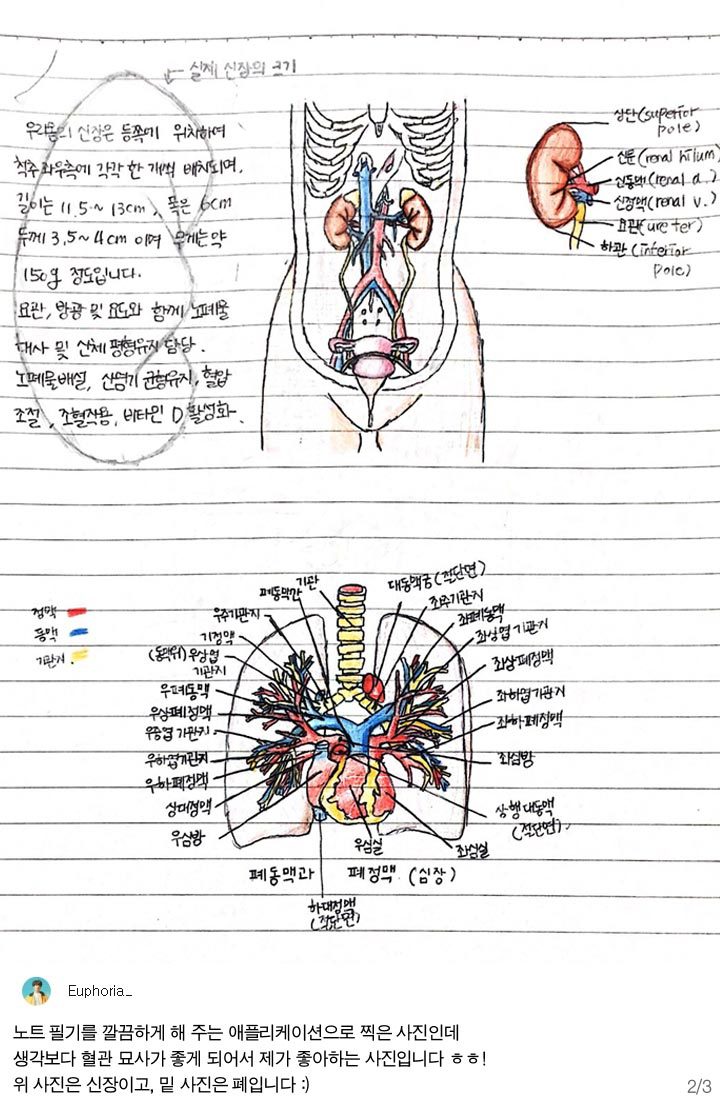 실제 신장의 크기
우리몸의 신장은 등쪽에 위치하여
척추 좌우측에 각각 한 개씩 배치되며,
길이는 11.5~13cm, 폭은 6cm
두께 3.5~4cm 이며 무게는 약
150g 정도입니다.
요관, 방광 및 요도와 함께 노폐물
대사 및 신체 평형유지 담당.
노폐물배설, 산염기 균형유지, 혈압
조절, 조혈작용, 비타민 D 활성화.
상단(superior
pole)
신문(renal hilum)
신동맥(renal a.)
신정맥(renal v.)
요관(ureter)
하관(inferior
pole)
정맥
동맥
기관지
기관
폐동맥간
우주기관지
기정맥
(동맥위)우상엽
기관지
우폐동맥
우상폐정맥
우중엽 기관지
우하엽기관지
우하폐정맥
상대정맥
우심방
대동맥궁(절단면)
좌주기관지
좌폐동맥
좌상엽 기관지
좌상폐정맥
좌하엽기관지
좌하폐정맥
좌심방
상행 대동맥
(절단면)
우심실
좌심실
폐동맥과 폐정맥. (심장)
하대정맥
(절단면)
Euphoria_
노트 필기를 깔끔하게 해 주는 애플리케이션으로 찍은 사진인데
생각보다 혈관 묘사가 좋게 되어서 제가 좋아하는 사진입니다 ㅎㅎ!
위 사진은 신장이고, 밑 사진은 폐입니다 :)
2/3